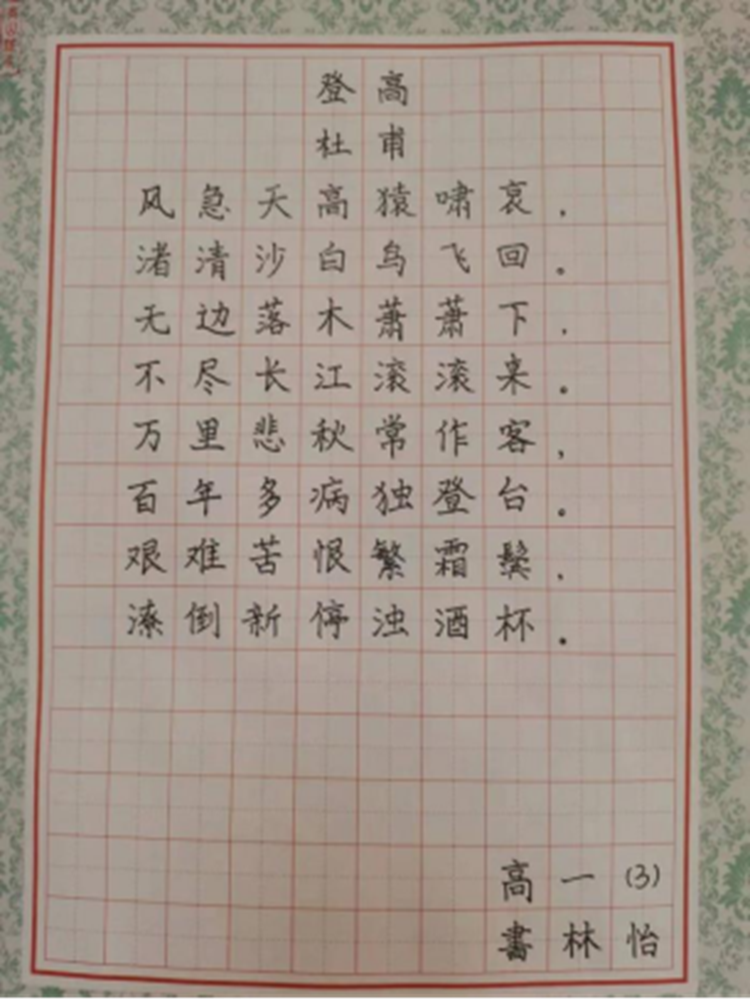 登高
杜甫
风急天高猿啸哀，
渚清沙白鸟飞回。
无边落木萧萧下，
不尽长江滚滚来。
万里悲秋常作客，
百年多病独登台。
艰难苦恨繁霜鬓，
潦倒新停浊酒杯。
高一(3)
書林怡